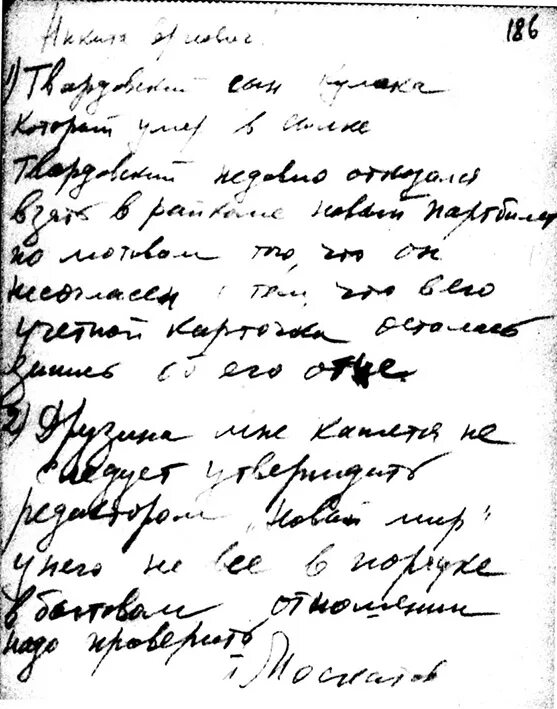 186
Никита Сергеевич!
1) Твардовский сын кулака
который умер в ссылке
Твардовский недавно отказался
взять в райкоме новый партбилет
по мотивам того, что он
несогласен с тем, что в его
учетной карточке осталась
запись об его отце.
2) Друзина мне кажется не
следует утверждать
редактором "Новый мир"
у него не все в порядке
в бытовом отношении
надо проверить
П. Поспелов